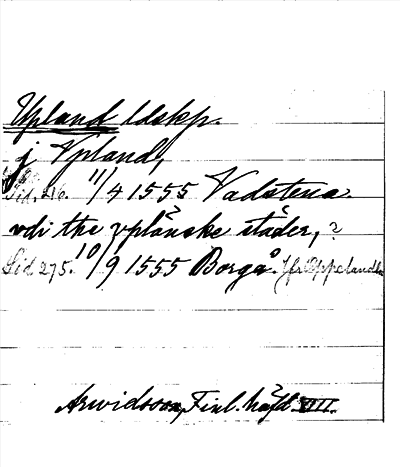 Upland ldskp.
j Vpland,
Sid. 216. 11/4 1555 Vadstena.
vdi the vplånske städer, ?
Sid 275. 10/9 1555 Borgå. Jfr Oppelandh
Arwidsson, Finl. häfd. VIII.